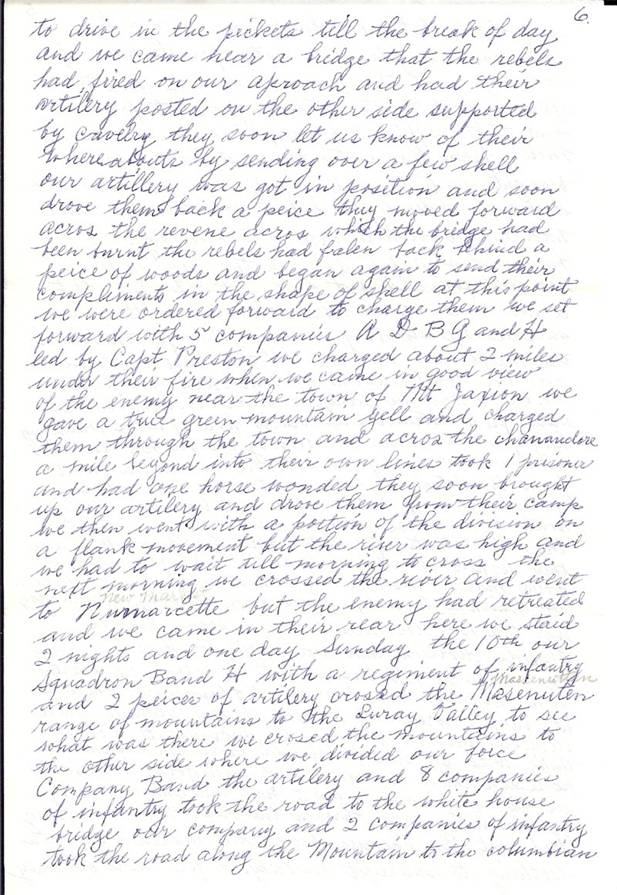 6.
to drive in the pickets till the break of day
and we came near a bridge that the rebels
had fired on our aproach and had their
artilery posted on the other side supported
by cavelry they soon let us know of their
whereabouts by sending over a few shell
our artillery was got in position and soon
drove them back a peice they moved forward
acros the revene acros which the bridge had
been burnt the rebels had falen back behind a
peice of woods and began again to send their
compliments in the shape of shell at this point
we were ordered forward to charge them we set
forward with 5 companies A D B G and H
led by Capt Preston we charged about 2 miles
under their fire when we came in good view
of the enemy near the town of Mt Jaxion we
gave a true green mountain yell and charged
them through the town and acros the chanandore
a mile beyond into their own lines took 1 prisoner
and had one horse wonded they soon brought
up our artilery and drove them from their camp
we then went with a portion of the division on
a flank movement but the river was high and
we had to wait till morning to cross the
next morning we crossed the river and went
New Market
to Numarcette but the enemy had retreated
and we came in their rear here we staid
2 nights and one day Sunday the 10th our
Squadron B and H with a regiment of infantry
Massenutten
and 2 peices of artilery crosed the Masenuten
range of mountains to the Luray Valley to see
what was there we crosed the mountains to
the other side where we divided our force
Company B and the artilery and 8 companies
of infantry took the road to the white house
bridge our company and 2 companies of infantry
took the road along the Mountain to the columbian